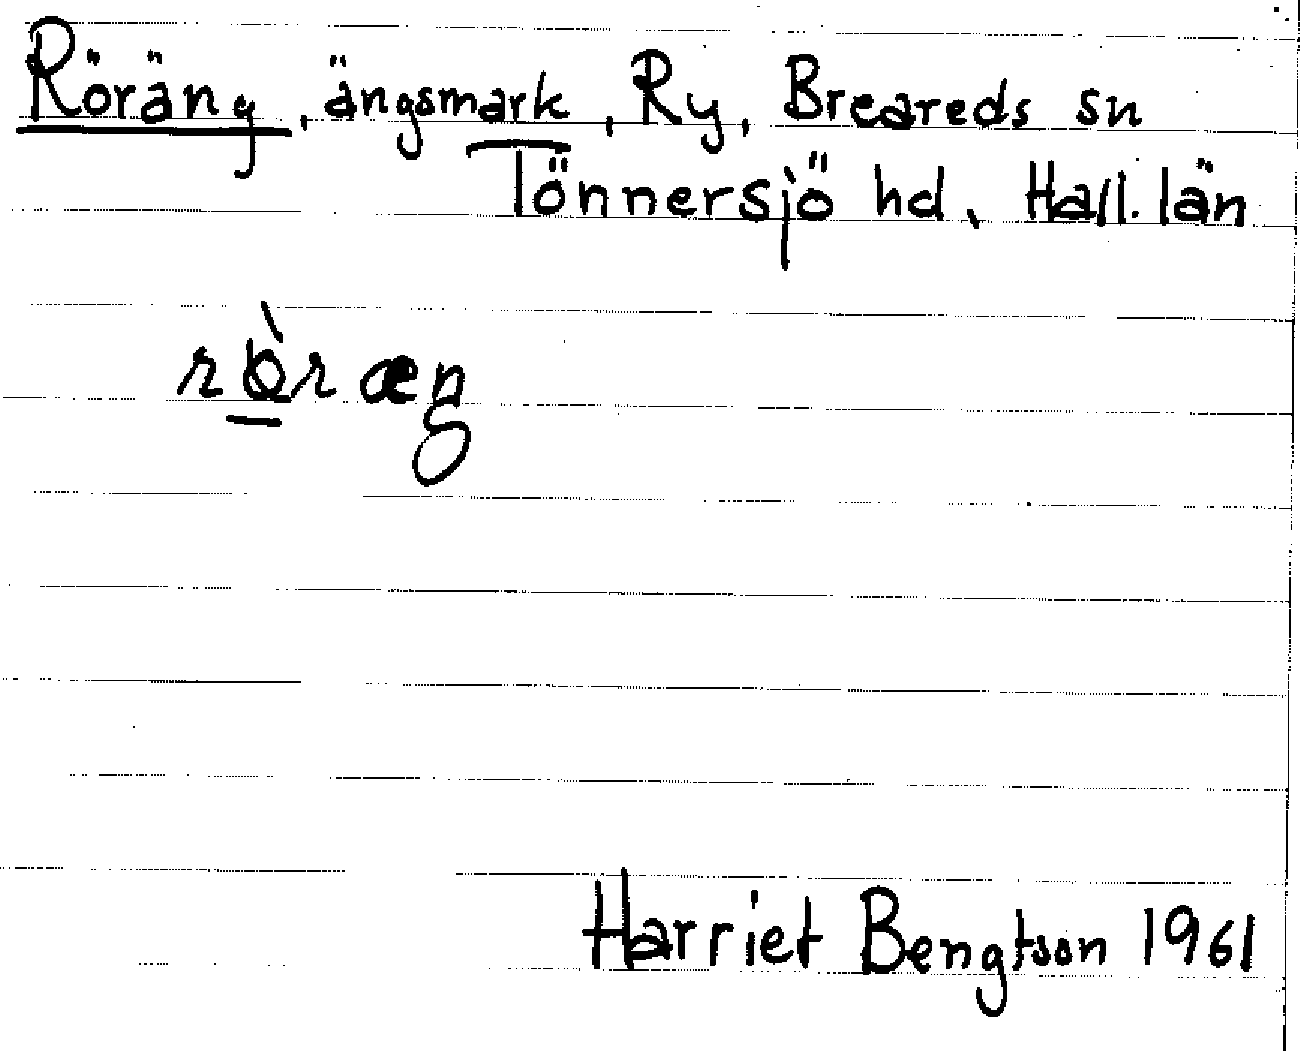 Röräng, ängsmark, Ry, Breareds sn
Tönnersjö hd, Hall. län
rö̀ræŋ
Harriet Bengtson 1961